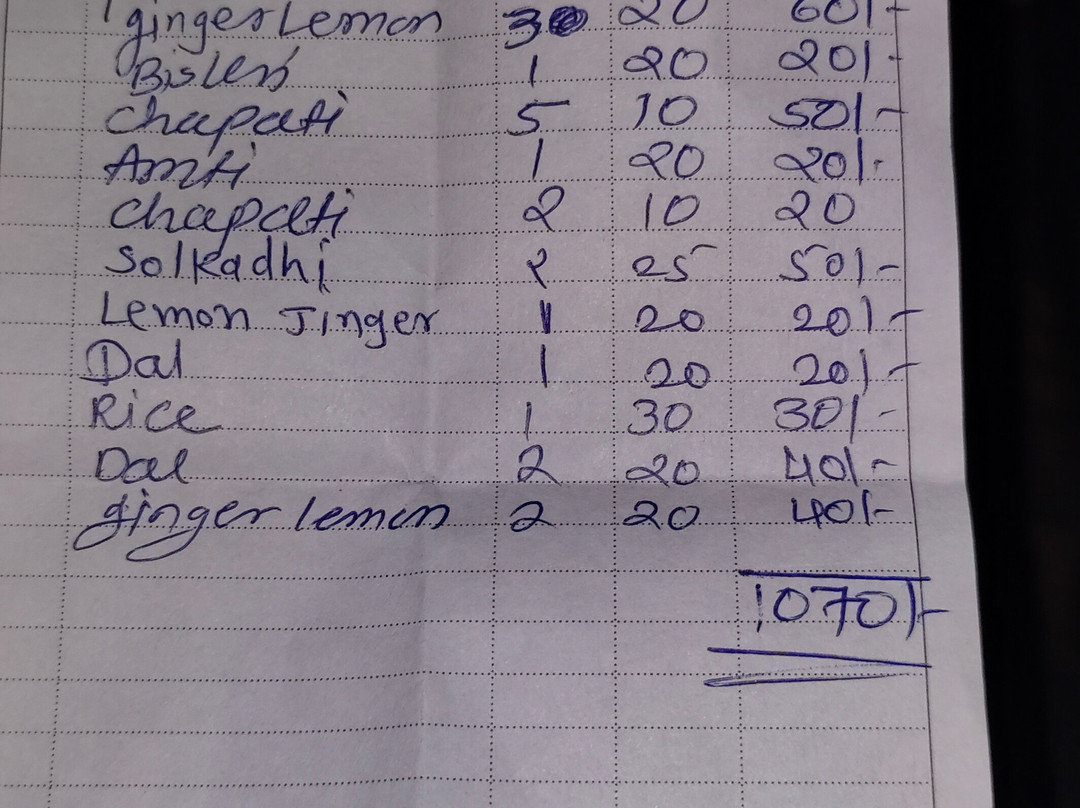 ginger Lemon 3 20 60/-
Bisleri 1 20 20/-
chapati 5 10 50/-
Amti 1 20 20/-
chapati 2 10 20
Solkadhi 2 25 50/-
Lemon Jinger 1 20 20/-
Dal 1 20 20/-
Rice 1 30 30/-
Dal 2 20 40/-
ginger lemon 2 20 40/-
1070/-